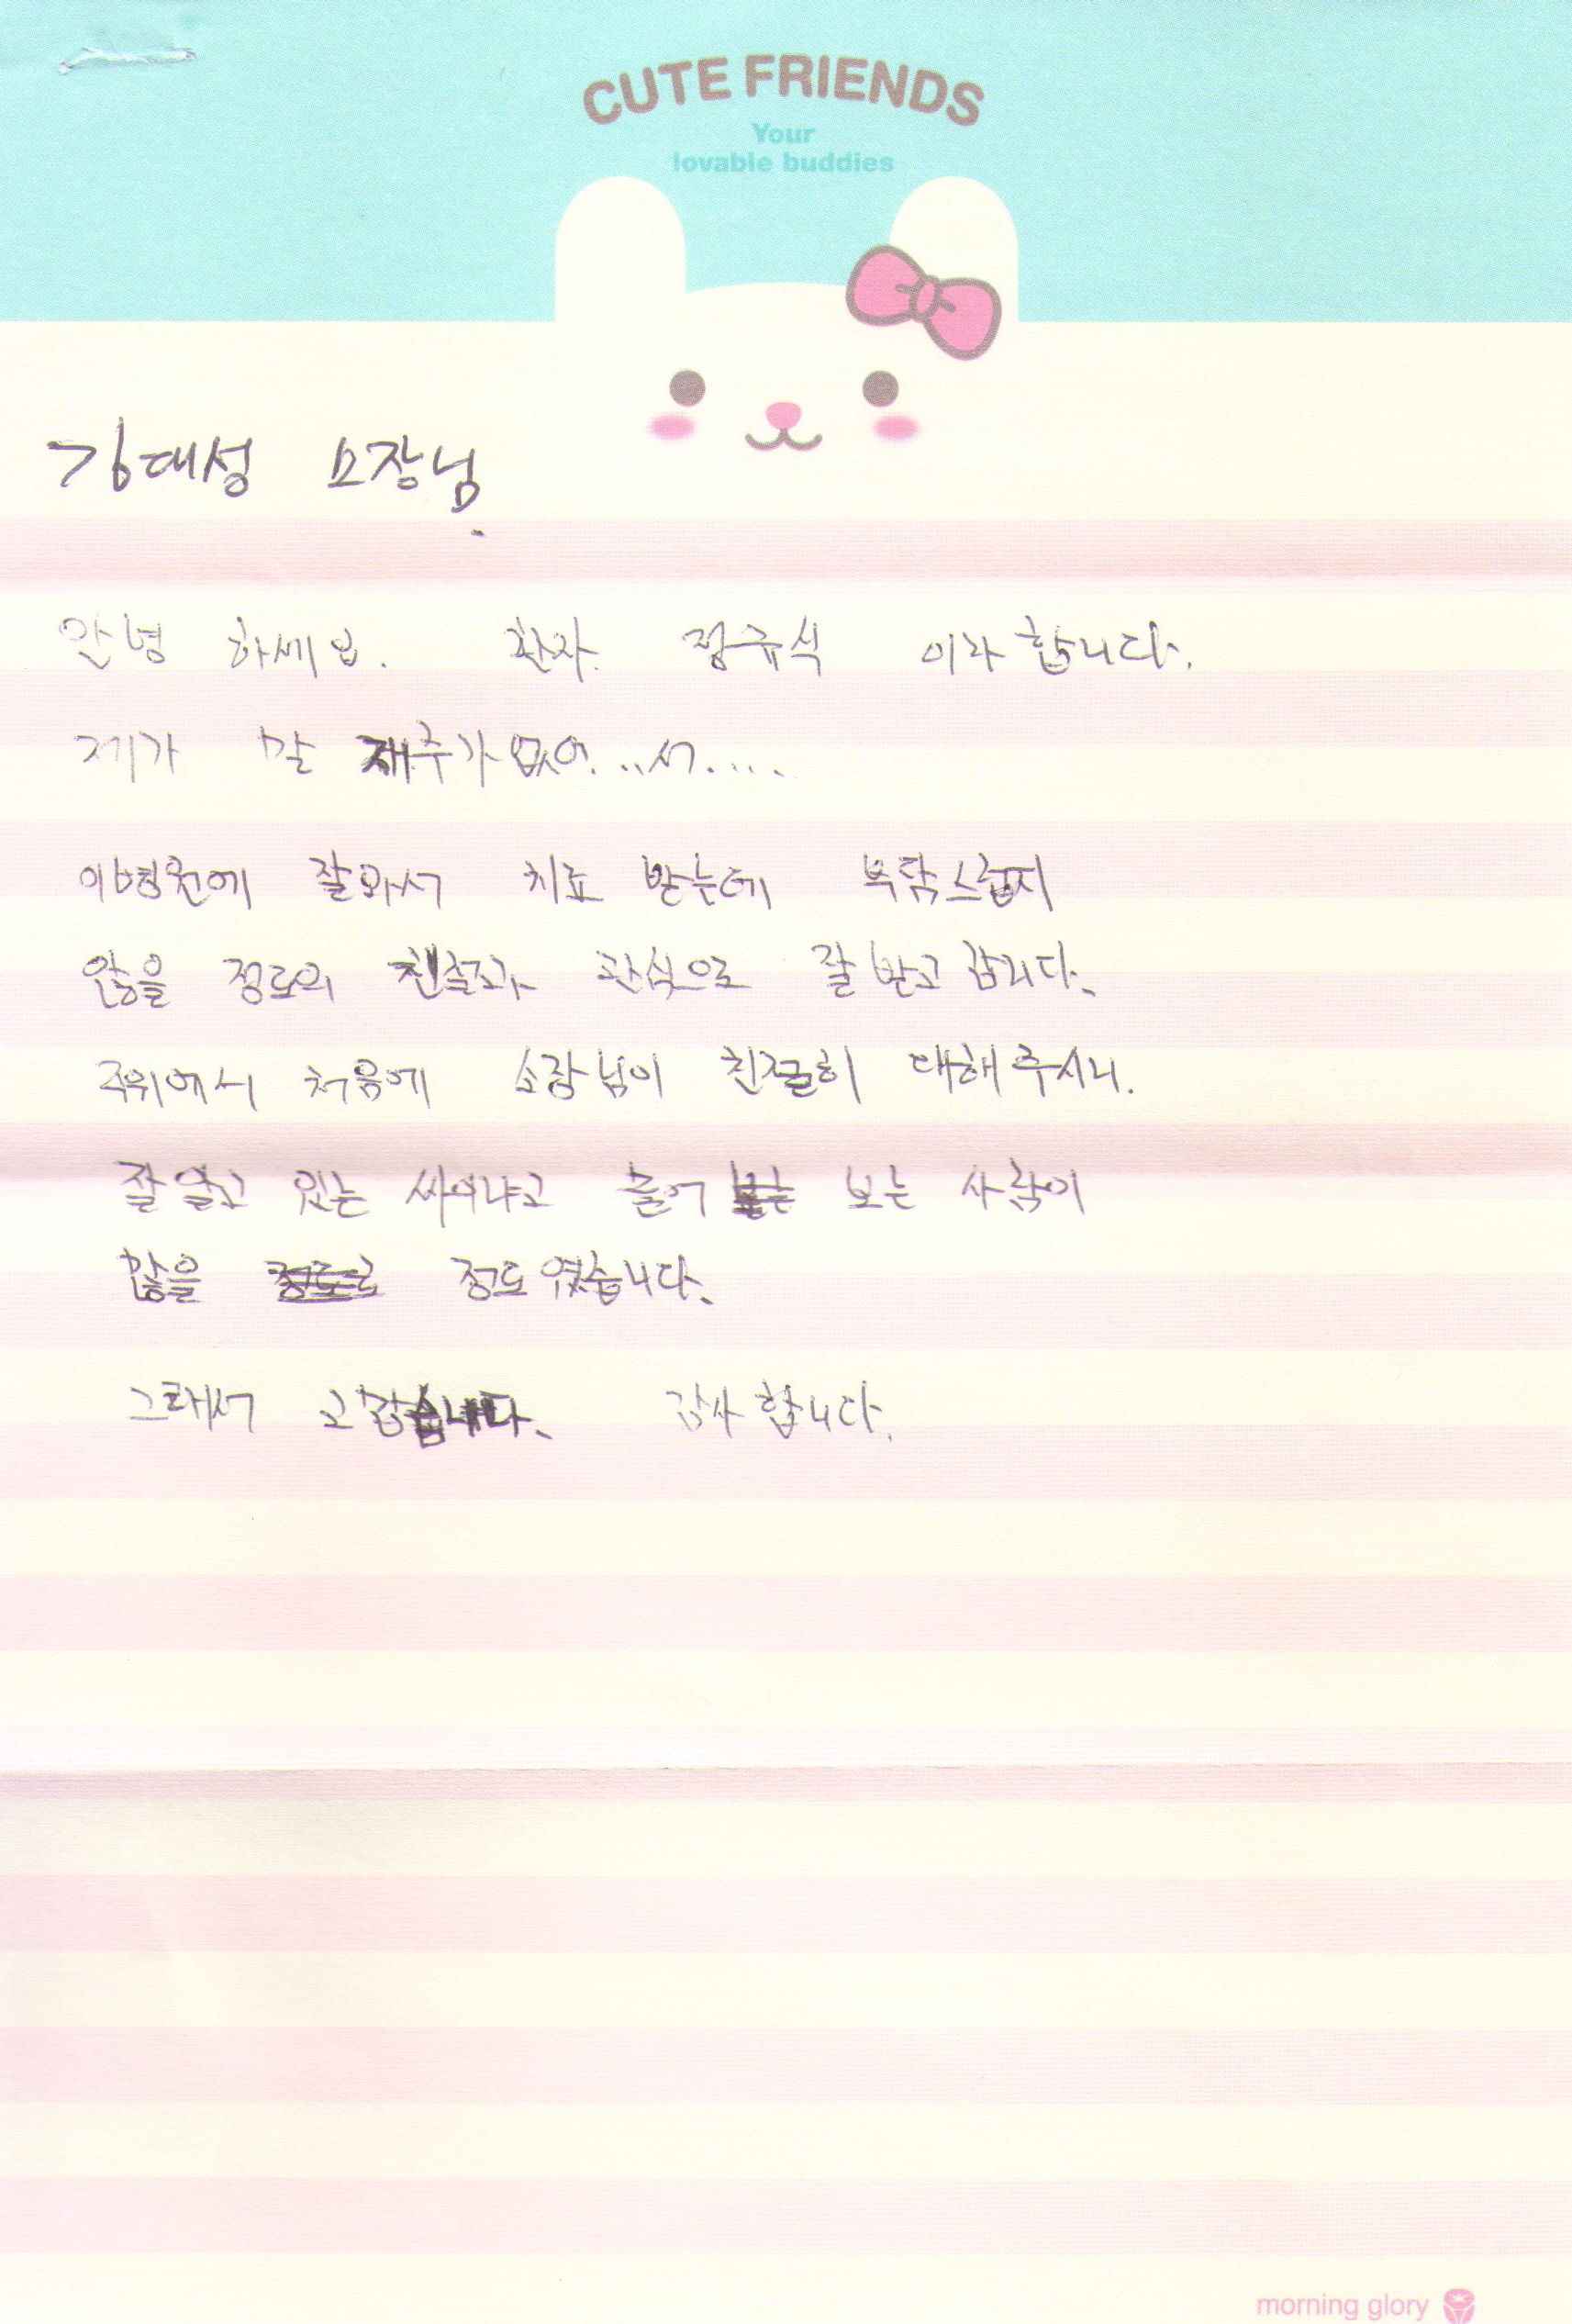 CUTE FRIENDS
Your
lovable buddies
김대성 소장님.
안녕 하세요. 환자. 정규식 이라 합니다.
제가 말 재주가 없어...서.....
이병원에 잘와서 치료 받는데 부담스럽지
않을 정도의 친절과 관심으로 잘 받고 갑니다.
주위에서 처음에 소장님이 친절히 대해 주시니.
잘 알고 있는 싸이냐고 물어 보는 사람이
많을 정도 였습니다.
그래서 고맙습니다. 감사 합니다.
morning glory